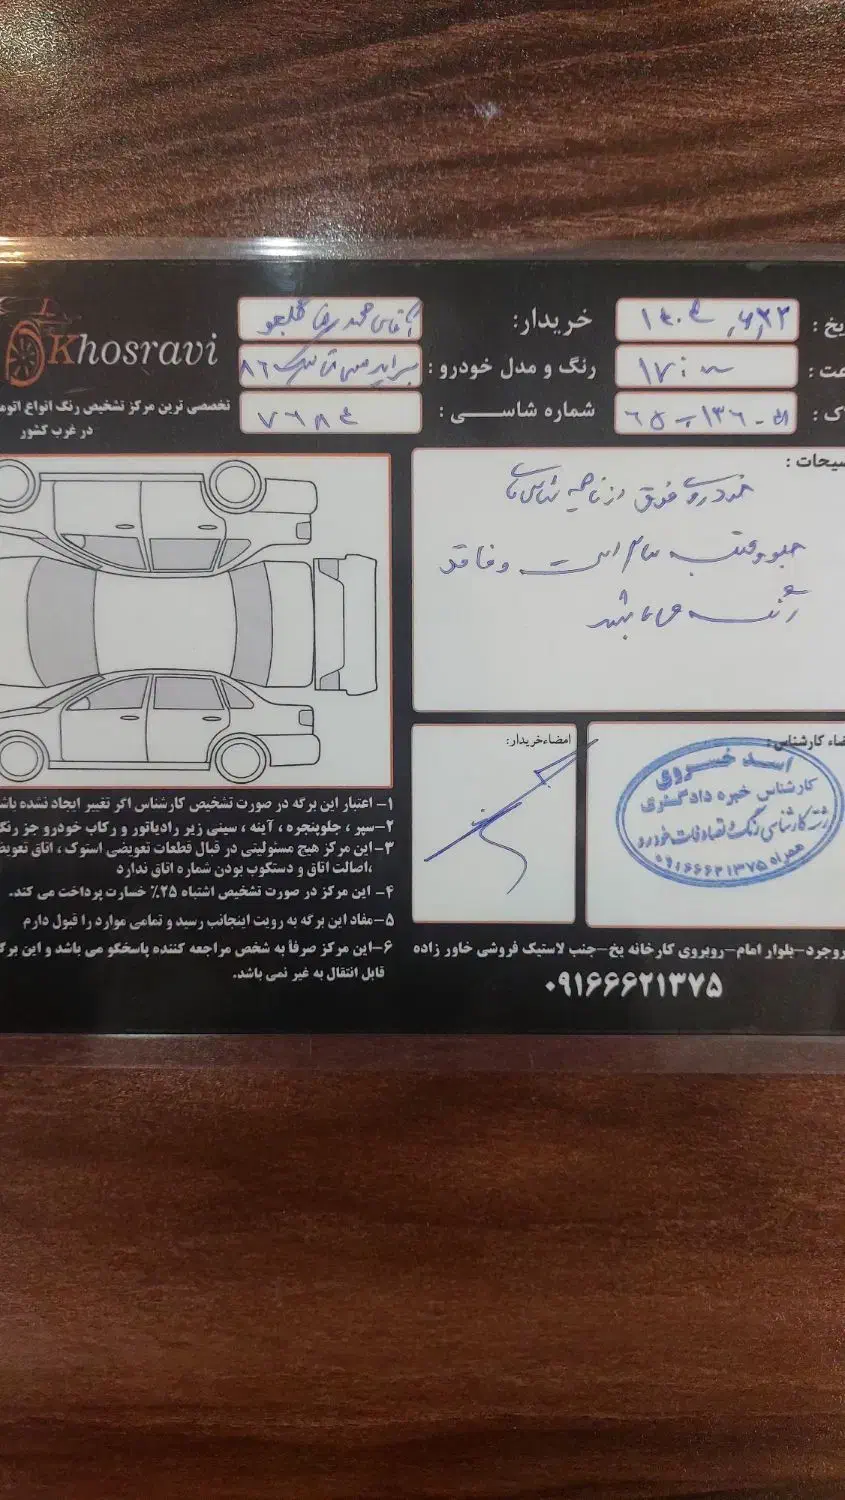 یخ : ۱۴۰۴,۶,۲۳
خریدار: آقای محمدرضا
عت : ۱۷:
رنگ و مدل خودرو : پراید ۸۶
ک :
شماره شاسی : ۷۶۸۴
Khosravi
تخصصی ترین مرکز تشخیص رنگ انواع اتومـ
در غرب کشور
ـیحات :
خودروی فوق از ناحیه شاسی های
جلو و عقب سالم است و فاقد
رنگ می باشد
ـضاء کارشناس:
امضاءخریدار:
اسد خسروی
کارشناس خبره دادگستری
رشته کارشناسی رنگ و تصادفات خودرو
همراه ۰۹۱۶۶۶۲۱۳۷۵
۱- اعتبار این برگه در صورت تشخیص کارشناس اگر تغییر ایجاد نشده باشـ
۲-سپر ، جلوپنجره ، آینه ، سینی زیر رادیاتور و رکاب خودرو جز رنگ
۳-این مرکز هیچ مسئولیتی در قبال قطعات تعویضی استوک ، اتاق تعویض
،اصالت اتاق و دستکوب بودن شماره اتاق ندارد
۴- این مرکز در صورت تشخیص اشتباه ۲۵٪ خسارت پرداخت می کند.
۵-مفاد این برگه به رویت اینجانب رسید و تمامی موارد را قبول دارم
۶-این مرکز صرفاً به شخص مراجعه کننده پاسخگو می باشد و این برگـ
قابل انتقال به غیر نمی باشد.
روجرد-بلوار امام-روبروی کارخانه یخ-جنب لاستیک فروشی خاور زاده
۰۹۱۶۶۶۲۱۳۷۵